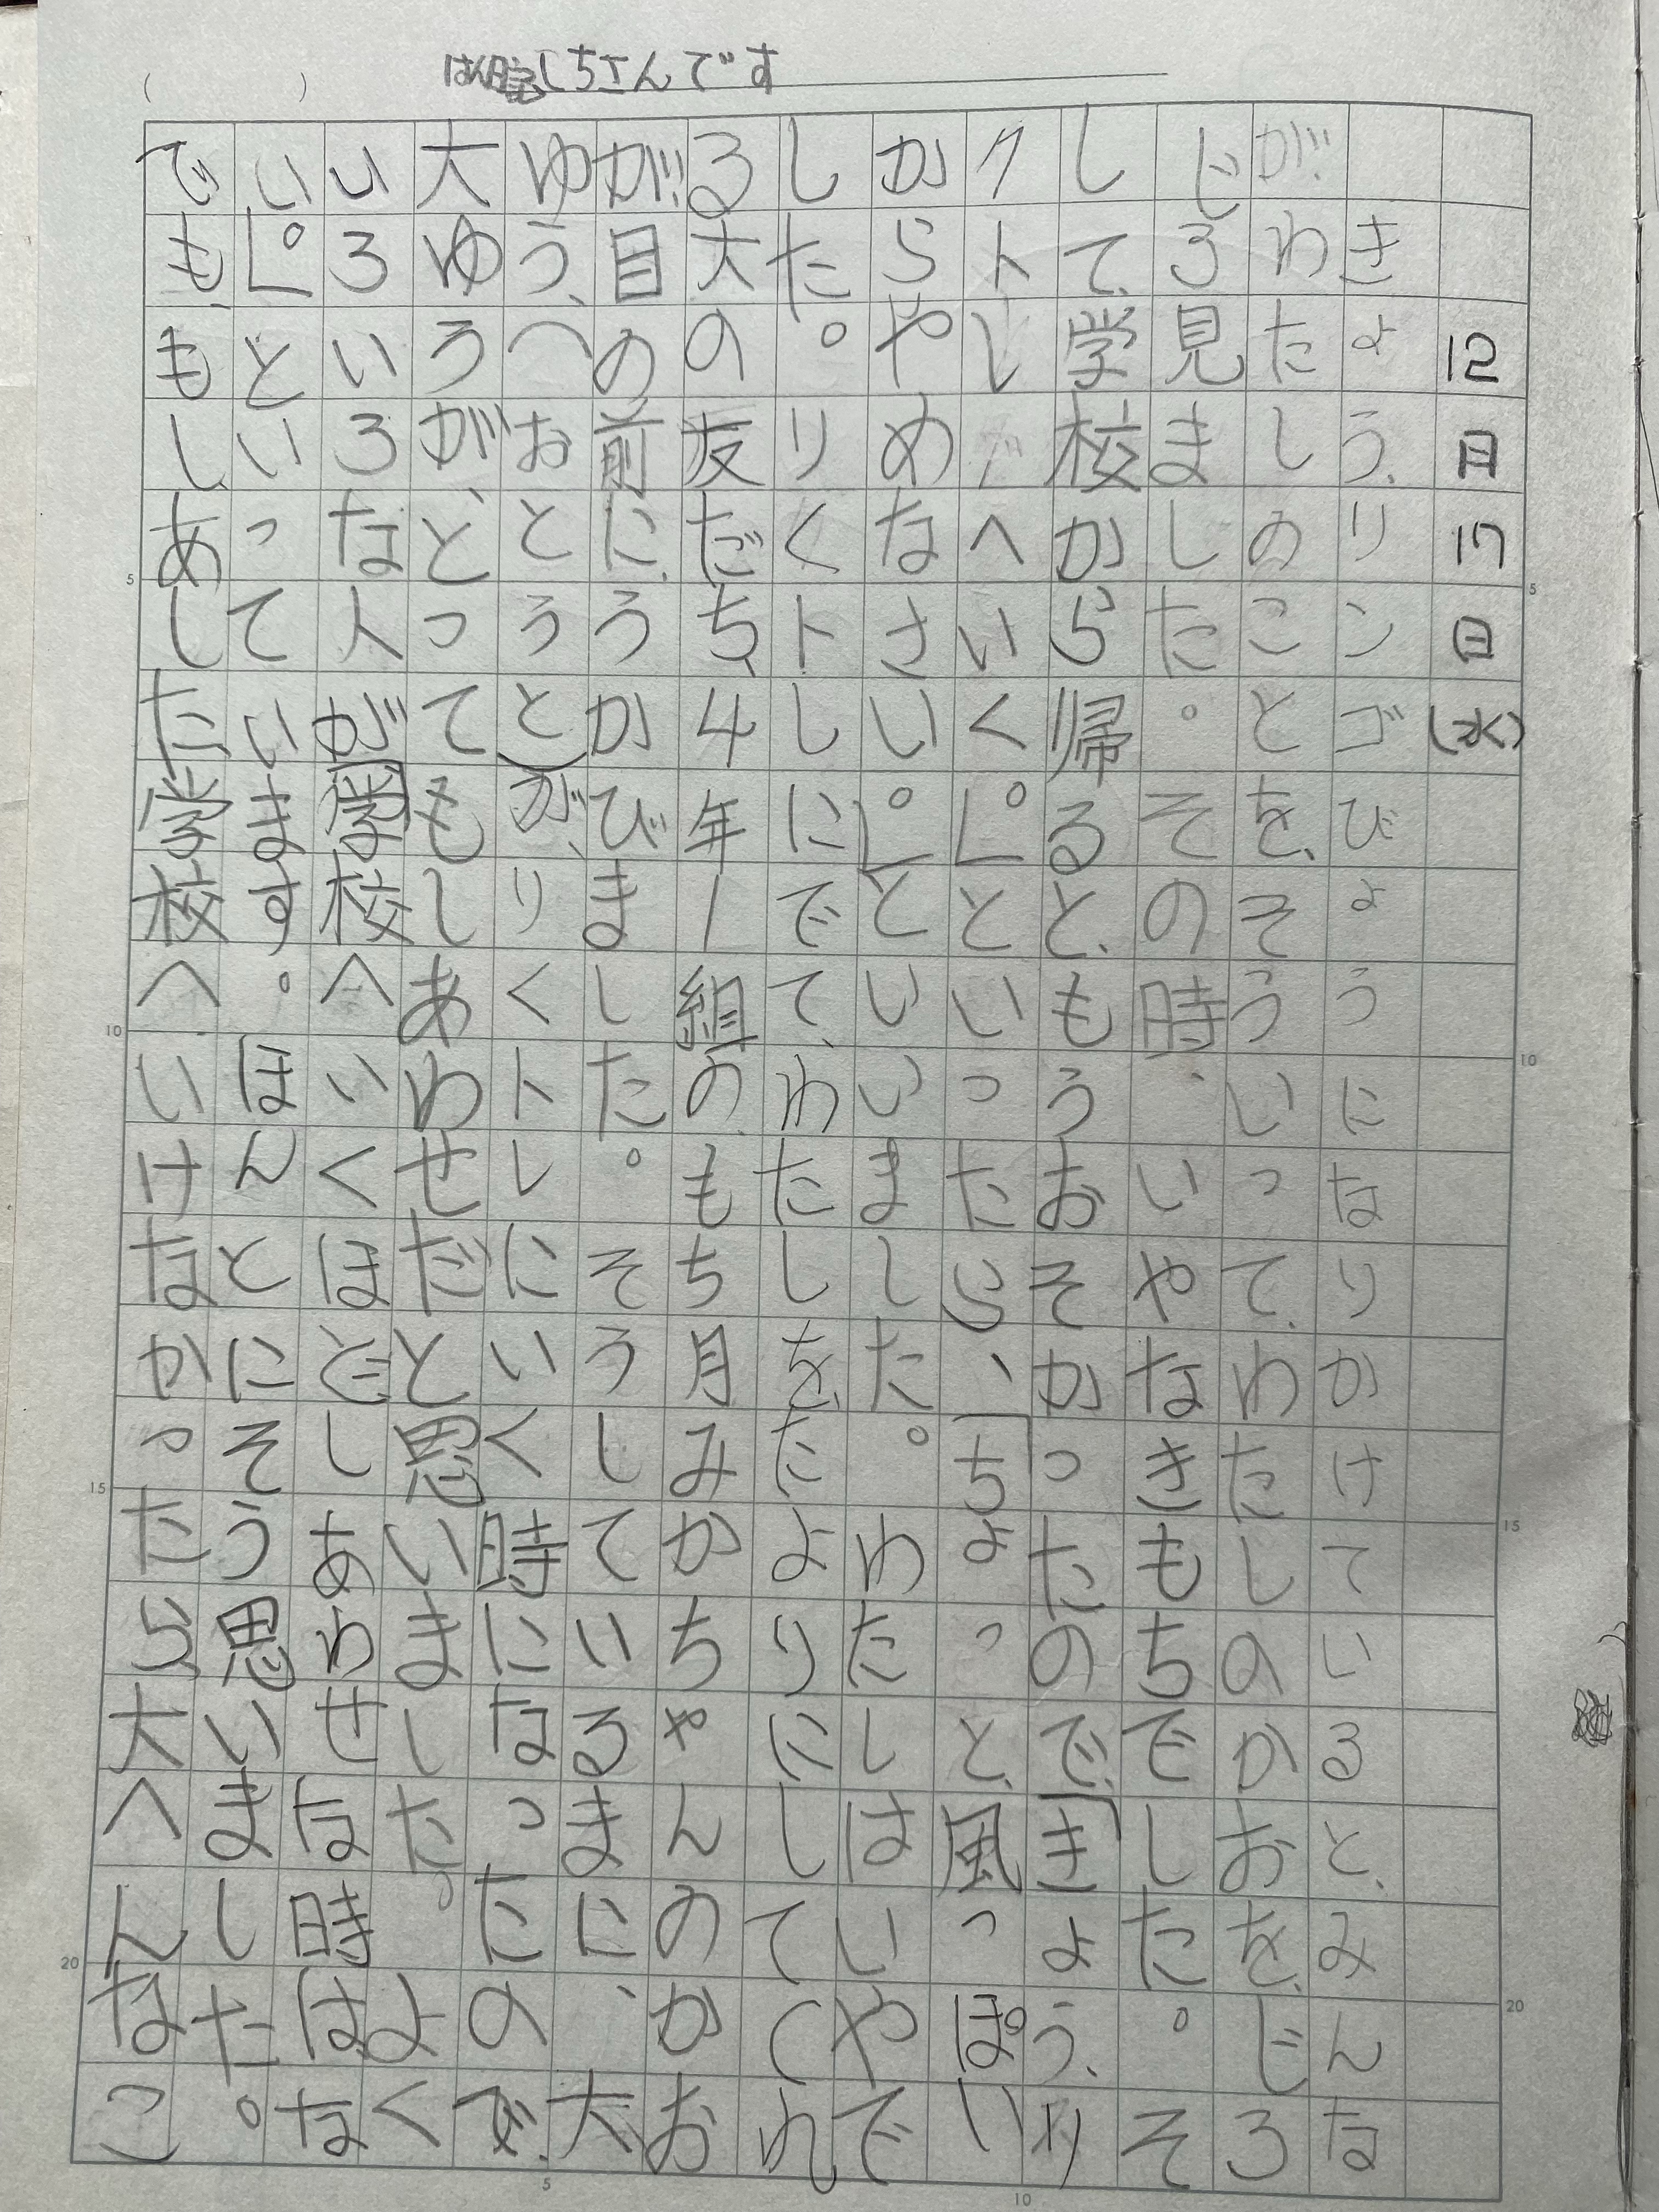 12月17日(水)
きょう、りンゴびょうになりかけていると、みんな
がわたしのことを、そういって、わたしのかおを、じろ
じろ見ました。その時、いやなきもちでした。そ
して、学校から帰ると、もうおそかったので、「きょう、リ
クトレへいく」といったら、「ちょっと、風っぽい
からやめなさい」といいました。わたしは、いやで
した。りくトレにでて、わたしを、たよりにしてくれ
る大の友だち、4年1組の、もち月みかちゃんのかお
が目の前に、うかびました。そうしているまに、大
ゆう、(おとうと)が、りくトレにいく時になったので、
大ゆうが、とってもしあわせだと思いました。よく
いろいろな人が学校へいくほどしあわせな時はな
い」といっています。ほんとにそう思いました。
でも、もしあした学校へいけなかったら大へんなこ